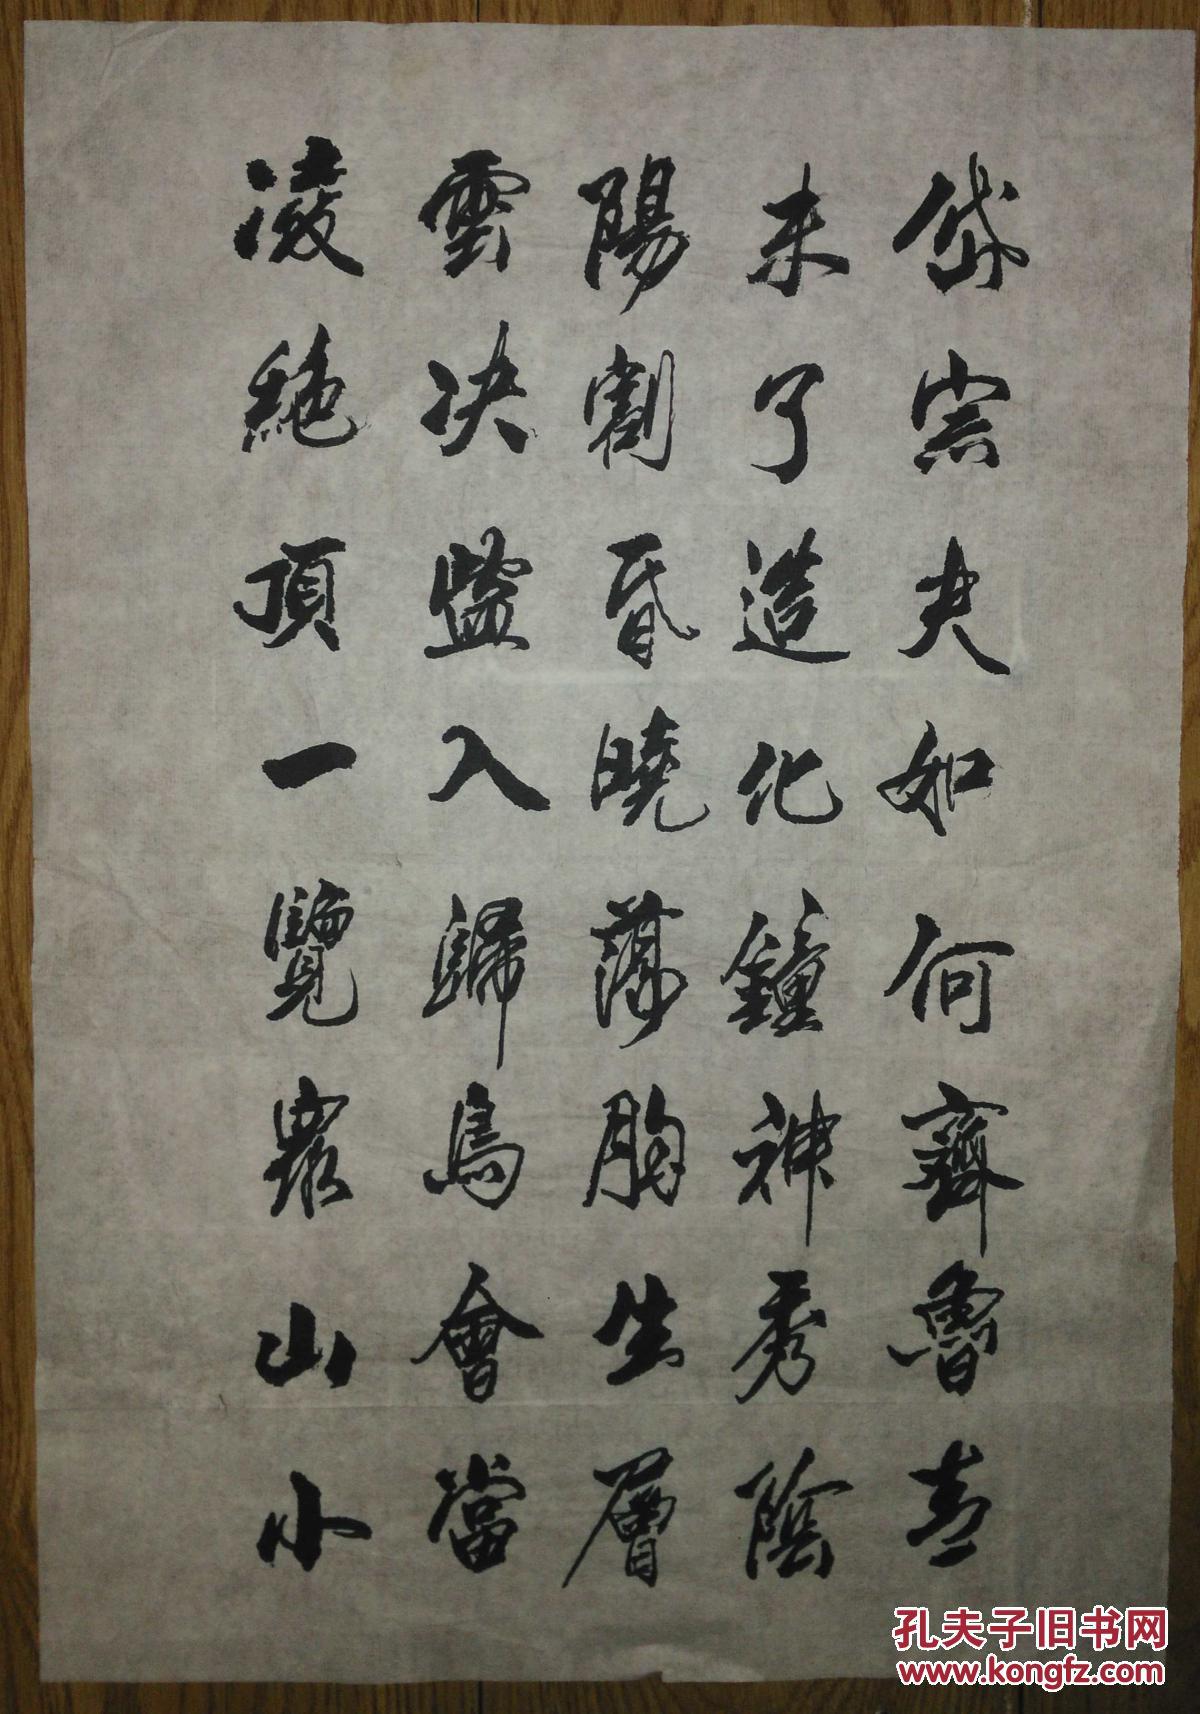 岱宗夫如何齊魯青
未了造化鐘神秀陰
陽割昏曉蕩胸生層
雲决眥入歸鳥會當
凌絕頂一覽眾山小
孔夫子旧书网
www.kongfz.com